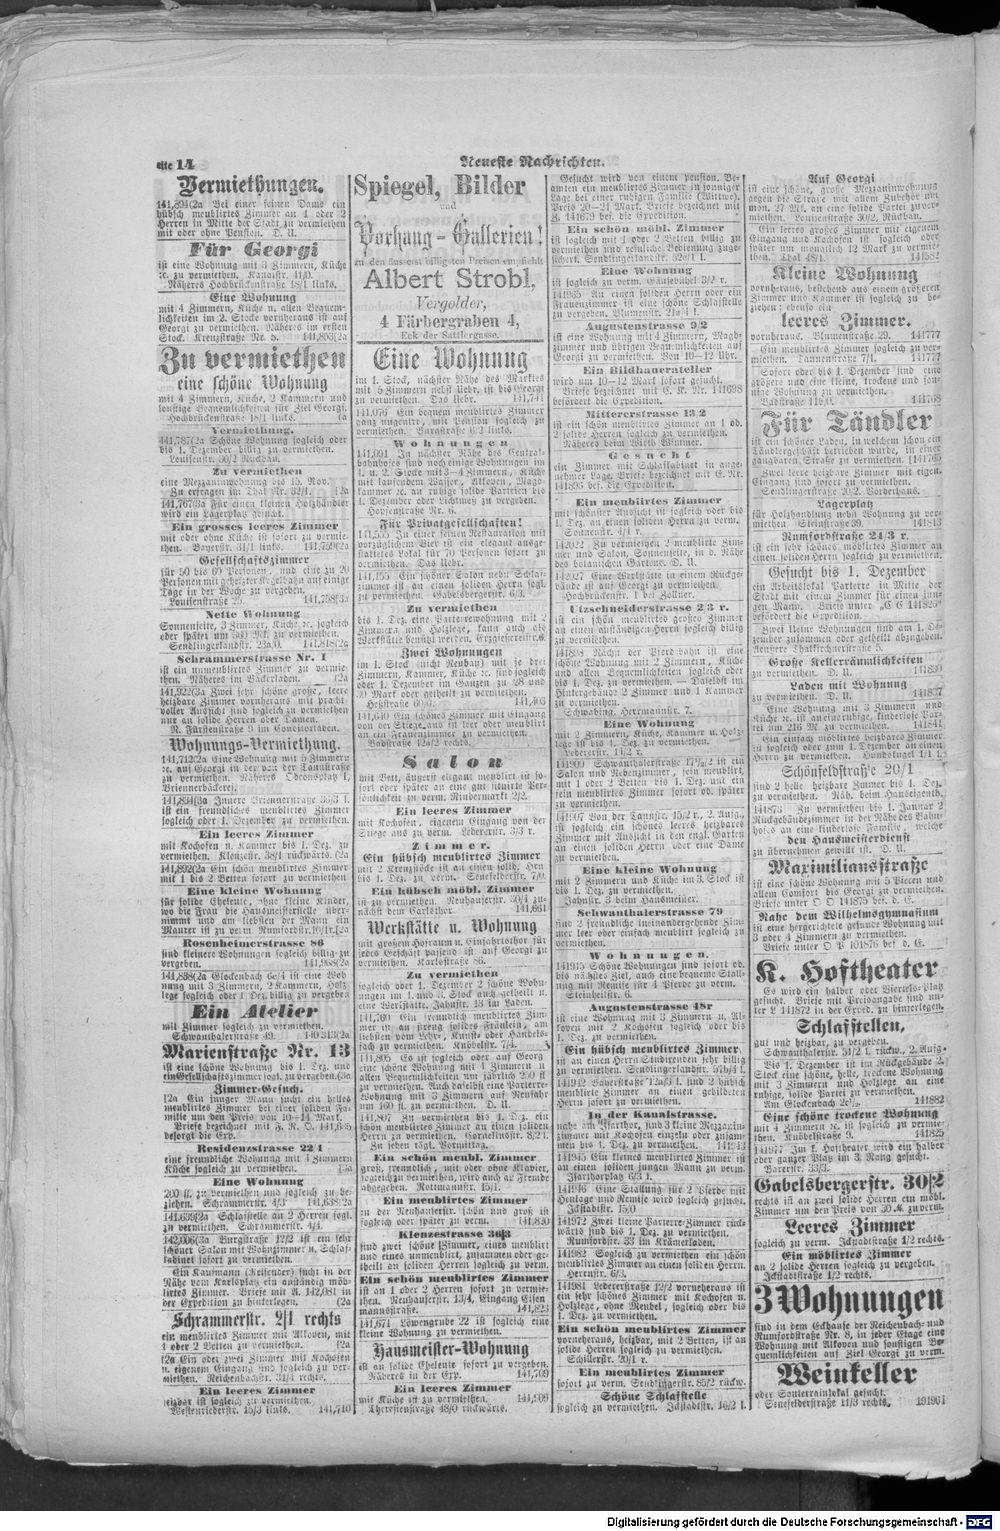 eite 14
Neueste Nachrichten.
Vermiethungen.
141,894(2a Bei einer feinen Dame ein
hübsch meublirtes Zimmer an 1 oder 2
Herren in Mitte der Stadt zu vermiethen
mit oder ohne Pension. D. U.
Für Georgi
ist eine Wohnung mit 3 Zimmern, Küche
ꝛc. zu vermiethen. Kanalstr. 41/0.
Näheres Hochbrückenstraße 18/1 links.
Eine Wohnung
mit 4 Zimmern, Küche u. allen Bequem-
lichkeiten im 2. Stocke vornheraus ist auf
Georgi zu vermiethen. Näheres im ersten
Stock. Kreuzstraße Nr. 5.
Zu vermiethen
eine schöne Wohnung
mit 4 Zimmern, Küche, 2 Kammern und
sonstige Bequemlichkeiten für Ziel Georgi.
Hochbrückenstraße 18/1 links. (a
Vermiethung.
141,787(2a Schöne Wohnung sogleich oder
bis 1. Dezember billig zu vermiethen.
Louisenstraße 30/2 Rückbau.
Zu vermiethen
eine Mezzaninwohnung bis 15. Nov.
Zu erfragen im Thal Nr. 32/1. (2a
141,767(3a Für einen kleinen Holzhändler
wird ein Lagerplatz gesucht.
Ein grosses leeres Zimmer
mit oder ohne Küche ist sofort zu vermie-
then. Bayerstr. 31/1 links. 141,759(2a
Gesellschaftszimmer
für 50 bis 60 Personen, und eine zu 20
Personen mit geheizter Kegelbahn auf einige
Tage in der Woche zu vergeben.
Louisenstraße 25. 141,758(3a
Nette Wohnung
Sonnenseite, 3 Zimmer, Küche ꝛc. sogleich
oder später um 360 Mk. zu vermiethen.
Sendlingerlandstr. 23a/0. 141,818(2a
Schrammerstrasse Nr. 1
ist ein unmeublirtes Zimmer zu vermie-
then. Näheres im Bäckerladen. (2a
141,922(3a Zwei sehr schöne große, leere
heizbare Zimmer vornheraus mit pracht-
voller Aussicht sind sogleich zu vermiethen
nur an solide Herren oder Damen.
N. Fürstenstraße 9 im Conditorladen.
Wohnungs-Vermiethung.
141,712(2a Eine Wohnung mit 5 Zimmern
ꝛc. auf Georgi in der von der Tannstraße
zu vermiethen. Näheres Odeonsplatz 1,
Briennerbäckerei.
141,834(3a Innere Briennerstraße 35/3 l.
ist ein freundliches meublirtes Zimmer
sogleich oder 1. Dezember zu vermiethen.
Ein leeres Zimmer
mit Kochofen u. Kammer bis 1. Dez. zu
vermiethen. Klenzestr. 38/1 rückwärts. (2a
141,892(2a Ein schön meublirtes Zimmer
mit 1 bis 2 Betten sofort zu vermiethen
Eine kleine Wohnung
für solide Eheleute, ohne kleine Kinder,
wo die Frau die Hausmeisterstelle über-
nimmt und am liebsten der Mann ein
Maurer ist zu verm. Rumfordstr.10/1r.(2a
Rosenheimerstrasse 86
sind kleinere Wohnungen sogleich billig zu
vergeben. 141,868(2a
141,838(2a Glockenbach 6c/4 ist eine Woh
nung mit 3 Zimmern, 2 Kammern, Holz
lege sogleich oder 1 Dez. billig zu vergeben
Ein Atelier
mit Zimmer sogleich zu vermiethen.
Schwanthalerstraße 49. 140 313(2a
Marienstraße Nr. 13
ist eine schöne Wohnung bis 1. Dez. und
ein Gesellschaftszimmer sogl. zu vergeben. (3a
Zimmer-Gesuch.
(2a Ein junger Mann sucht ein helles
meublirtes Zimmer bei einer soliden Fa-
milie um den Preis von 10—14 Mark.
Briefe bezeichnet mit F. R. O.
besorgt die Exp.
Residenzstrasse 22 1
eine freundliche Wohnung mit 4 Zimmern
Küche sogleich zu vermiethen. (3a
Eine Wohnung
200 fl. zu vermiethen und sogleich zu be-
ziehen. Schrammerstr. 4/3 141,638(2a
141,639(2a Schlafstelle an 2 Herren sogl.
zu vermiethen. Schrammerstr. 4/4.
142,006(3a Burgstraße 12/2 ist ein sehr
schöner Salon mit Wohnzimmer u. Schlaf-
cabinet sofort zu vermiethen.
Ein Kaufmann (Reisender) sucht in der
Nähe vom Karlsplatz ein anständig möb-
lirtes Zimmer. Briefe mit A. 142,081 in
der Expedition zu hinterlegen. (2a
Schrammerstr. 2/1 rechts
ein meublirtes Zimmer mit Alkoven, mit
1 oder 2 Betten zu vermiethen. (2a
(2a Ein oder zwei Zimmer mit Kochofen
u. eigenem Eingang sind sogleich zu ver-
miethen. Reichenbachstr. 31/4 rechts.
Ein leeres Zimmer
heizbar ist sogleich zu vermiethen.
Westenriederstr. 15/3 links. 141,710
Spiegel, Bilder
und
Vorhang-Gallerien!
zu den äusserst billigsten Preisen empfiehlt
Albert Strobl,
Vergolder,
4 Färbergraben 4,
Eck der Sattlergasse.
Eine Wohnung
im 1. Stock, nächster Nähe des Marktes
mit 5 Zimmern nebst Uebr. ist bis Georgi
zu vermiethen. Das Uebr. 141,741
141,076 Ein bequem meublirtes Zimmer
ganz ungenirt, mit Pension sogleich zu
vermiethen. Burgstraße 6/2 links.
Wohnungen
141,091 In nächster Nähe des Central-
bahnhofes sind noch einige Wohnungen im
1. u. 2. Stocke mit 3—4 Zimmern, Küche
mit laufendem Wasser, Alkoven, Magd-
kammer ꝛc. an ruhige solide Partien bis
1. Dezember oder Lichtmeß zu vermiethen.
Hopfenstraße Nr. 6.
Für Privatgesellschaften!
141,555 In einer feinen Restauration mit
vorzüglichem Bier ist ein elegant ausge-
stattetes Lokal für 70 Personen sofort zu
vermiethen. Das Uebr.
141,155 Ein schöner Salon nebst Schlaf-
zimmer ist an einen soliden Herrn sogl.
zu vermiethen. Gabelsbergerstr. 6/3.
Zu vermiethen
bis 1. Dez. eine Parterrewohnung mit 2
Zimmern und Holzlege, kann auch als
Werkstätte benützt werden. Erzgießereistr.6.
Zwei Wohnungen
im 1. Stock (nicht Neubau) mit je drei
Zimmern, Kammer, Küche ꝛc. sind sogleich
oder 1. Dezember im Ganzen zu 28 und
30 Mark oder getheilt zu vermiethen.
Heßstraße 60/0. 141,403
141,640 Ein schönes Zimmer mit Eingang
von der Stiege aus ist leer oder meublirt
an ein Frauenzimmer zu vermiethen.
Badstraße 12a/2 rechts.
Salon
mit Bett, äußerst elegant meublirt ist so-
fort oder später an eine gut situirte Per-
sönlichkeit zu verm. Rindermarkt 2/2.
Ein leeres Zimmer
mit Kochofen, eigenem Eingang von der
Stiege aus zu verm. Ledererstr. 3/3 r.
Zimmer.
Ein hübsch meublirtes Zimmer
mit 2 Kreuzstöcke ist an einen solid. Hrn
bis 1. Dez. zu verm. Senefelderstr. 7/0.
Ein hübsch möbl. Zimmer
ist zu vermiethen. Neuhauserstr. 30/4 zu-
nächst dem Carlsthor. 141,661
Werkstätte u. Wohnung
mit großem Hofraum u. Einfahrtsthor für
jedes Geschäft passend ist auf Georgi zu
vermiethen. Karlsstraße 86.
Zu vermiethen
sogleich oder 1. Dezember 2 schöne Woh-
nungen im 1. und 3. Stock auch getheilt u.
eine Werkstatt. Jahnstr. 43 im Laden.
141,769 Ein freundlich meublirtes Zim-
mer ist an streng solides Fräulein, am
liebsten vom Lehr-, Kunst- oder Handels-
fach zu vermiethen. Knollstr. 7/4.
141,805 Es ist sogleich oder auf Georg
eine Wohnung mit 4 Zimmern u
allen Bequemlichkeiten um jährlich 250 fl
zu vermiethen. Auch daselbst eine Parterre-
Wohnung mit 3 Zimmern auf Neujahr
um 160 fl. zu vermiethen. D. U.
141,807 Zu vermiethen bis 1. Dez. ein
schön meublirtes Zimmer an einen soliden
Herrn zu vermiethen. Corneliusstr. 8/2 l.
Zu sehen tägl. Vormittag.
Ein schön meubl. Zimmer
groß, freundlich, mit oder ohne Klavier,
sogleich zu vermiethen, wird auch an Fremde
abgegeben. Rottmannstr. 15/1.
Ein meublirtes Zimmer
in der Neuhauserstr. schön und groß ist
sogleich oder später zu verm. 141,820
Klenzestrasse 36/3
sind zwei schöne Zimmer, eines meublirt
und eines unmeublirt, zusammen oder ge-
theilt an soliden Herren sogleich zu verm.
Ein schön meublirtes Zimmer
ist an 1 oder 2 Herren sofort zu vermie-
then. Neuhauserstr. 13/4, Eingang Eisen
mannsstraße. 141,823
141,671 Löwengrube 22 ist sogleich eine
kleine Wohnung zu vermiethen.
Hausmeister-Wohnung
ist an solide Eheleute sofort zu vergeben.
Näheres in der Exp. 141,709
Ein leeres Zimmer
mit Küche ist zu vermiethen. 141,909
Theresienstraße 48/0 rückwärts.
Gesucht wird von einem pension. Be-
amten ein meublirtes Zimmer in sonniger
Lage bei einer ruhigen Familie (Wittwe).
Preis 20—21 Mark. Briefe bezeichnet mit
Z. 141679 bef. die Expedition.
Ein schön möbl. Zimmer
ist sogleich mit 1 oder 2 Betten billig zu
vermiethen und reinliche Bedienung zuge-
sichert. Sendlingerlandstr. 52c/1 l.
Eine Wohnung
ist sogleich zu verm. Gänsbühel 3/2 r.
141965 An einen soliden Herrn oder ein
Frauenzimmer ist eine schöne Schlafstelle
zu vergeben. Blumenstr. 21a/4 l.
Augustenstrasse 9/2
ist eine Wohnung mit 4 Zimmern, Magd-
zimmer und übrigen Bequemlichkeiten auf
Georgi zu vermiethen. Von 10—12 Uhr.
Ein Bildhaueratelier
wird um 10—12 Mark sofort gesucht.
Briefe bezeichnet mit C. R. Nr. 141698
befördert die Expedition.
Mittererstrasse 13 2
ist ein schön meublirtes Zimmer an 1 od.
2 solide Herren sogleich zu vermiethen.
Näheres beim Wirth Blümner.
Gesucht
ein Zimmer mit Schlafkabinet in ange-
nehmer Lage. Briefe bezeichnet mit E. Nr.
141895 bef. die Expedition.
Ein meublirtes Zimmer
mit schönster Aussicht ist sogleich oder bis
1. Dez. an einen soliden Herrn zu verm.
Sonnenstr. 4/1 r.
142022 Zu vermiethen 2 meublirte Zim-
mer und Salon, Sonnenseite, in d. Nähe
des botanischen Gartens. D. U.
142027 Eine Werkstätte in einem Rückge-
bäude ist auf Georgi zu vermiethen.
Hochbrückenstr. 1 bei Zöllner.
Utzschneiderstrasse 2 3 r.
ist ein schön meublirtes großes Zimmer
an einen anständigen Herrn sogleich billig
zu vermiethen.
141898 Nächst der Pferdbahn ist eine
schöne Wohnung mit 2 Zimmern, Küche
und allen Bequemlichkeiten sogleich oder
bis 1. Dez. zu vermiethen. — Daselbst im
Hintergebäude 2 Zimmer und 1 Kammer
zu vermiethen.
Schwabing, Herrmannstr. 7.
Eine Wohnung
mit 2 Zimmern, Küche, Kammer u. Holz-
lege ist bis 1. Dez. zu vermiethen.
Ledererstr. 14/2 r.
141900 Schwanthalerstraße 17½/2 ist ein
Salon und Nebenzimmer, fein meublirt,
mit 1 oder 2 Betten bis 1. Dez. und ein
fein meublirtes Zimmer sofort od. später
zu vermiethen.
141907 Von der Tannstr. 15/2 r., 2. Aufg.,
ist sogleich ein schönes leeres heizbares
Zimmer mit Aussicht in den engl. Garten
an einen soliden Herrn oder eine Dame
zu vermiethen.
Eine kleine Wohnung
mit 2 Zimmern und Küche im 3. Stock ist
bis 1. Dez. zu vermiethen.
Jahnstr. 3 beim Hausmeister.
Schwanthalerstrasse 79
sind 2 freundliche ineinandergehende Zim-
mer leer oder einfach meublirt sogleich zu
vermiethen.
Wohnungen.
141915 Schöne Wohnungen sind sofort od.
bis nächstes Ziel, auch eine bequeme Stall-
ung mit Remise für 4 Pferde zu verm.
Steinheilstr. 6.
Augustenstrasse 48r
ist eine Wohnung mit 3 Zimmern u. Al-
koven mit 2 Kochofen sogleich oder bis
1. Dez. zu vermiethen.
Ein hübsch meublirtes Zimmer
ist an einen Herrn Studirenden sehr billig
zu vermiethen. Sendlingerlandstr. 57b/4 l.
141942 Bayerstraße 12a/3 l. sind 2 hübsch
meublirte Zimmer an einen gebildeten
Herrn sofort zu vermiethen.
In der Kanalstrasse.
nahe am Isarthor, sind 3 kleine Mezzanin-
zimmer mit Kochofen einzeln oder zusam-
men bis 1. Dez. zu vermiethen. 141943
141945 Ein kleines meublirtes Zimmer ist
an einen soliden jungen Mann zu verm.
Isarthorplatz 6/3 l.
141946 Eine Stallung für 2 Pferde mit
Heulage und Remise wird sogleich gesucht.
Ickstadtstr. 15/0
141972 Zwei kleine Parterre-Zimmer rück-
wärts sind bis 1. Dez. zu vermiethen.
Rumfordstr. 33 im Krämerladen.
141982 Sogleich zu vermiethen ein schön
meublirtes Zimmer an einen soliden Herrn.
Herrnstr. 6/3.
141981 Ledererstraße 12/2 vorneheraus ist
ein sehr schönes Zimmer mit Kochofen u.
Holzlege, ohne Meubel, sogleich oder bis
1. Dez. zu vermiethen.
Ein schön meublirtes Zimmer
vorneheraus, heizbar, mit 2 Betten, ist an
solide Herren sogleich zu vermiethen.
Schillerstr. 20/1 r.
Ein meublirtes Zimmer
sofort zu verm. Sendlingerstr. 85/2 rückw.
Schöne Schlafstelle
sogleich zu vermiethen. Ickstadtstr. 16/2 l.
Auf Georgi
ist eine schöne, große Mezzaninwohnung
gegen die Straße mit allem Zubehör um
mon. 27 Mk. an eine solide Partei zu ver-
miethen. Louisenstraße 30/2, Rückbau.
Ein leeres großes Zimmer mit eigenem
Eingang und Kochofen ist sogleich oder
später um monatlich 12 Mark zu vermie-
then. Thal 48/1. 141582
Kleine Wohnung
vornheraus, bestehend aus einem größeren
Zimmer und Kammer ist sogleich zu be-
ziehen; ebenso ein
leeres Zimmer.
vornheraus. Blumenstraße 29. 141777
Ein meublirtes Zimmer sogleich zu ver-
miethen. Tannenstraße 7/1. 141777
Sofort oder bis 1. Dezember sind eine
größere und eine kleine, trockene und son-
nige Wohnung zu vermiethen.
Badstraße 11b/0. 141768
Für Tändler
ist ein schöner Laden, in welchem schon ein
Tändlergeschäft betrieben wurde, in einer
gangbaren Straße zu vermiethen. [141765
Zwei leere heizbare Zimmer mit eigen.
Eingang sind sofort zu vermiethen.
Sendlingerstraße 20/2. Vorderhaus.
Lagerplatz
für Holzhandlung nebst Wohnung zu ver-
miethen Steinstraße 39. 141813
Rumfordstraße 24/3 r.
ist ein sehr schönes möblirtes Zimmer an
einen soliden Herrn sogleich zu vermiethen.
Gesucht bis 1. Dezember
ein Arbeitslokal Parterre in Mitte der
Stadt mit einem Zimmer für einen jun-
gen Mann. Briefe unter „C C 141825“
befördert die Expedition.
Zwei kleine Wohnungen sind am 1. De-
zember zusammen oder getheilt abzugeben.
Aeußere Thalkirchnerstraße 5.
Große Kellerräumlichkeiten
zu vermiethen. D. U. 141830
Laden mit Wohnung
zu vermiethen. D. U. 141837
Eine Wohnung mit 3 Zimmern und
Küche ꝛc. ist an eine ruhige, kinderlose Par-
tei um 216 M. zu vermiethen. 141841
Ein einfach möblirtes heizbares Zimmer
ist sogleich oder zum 1. Dezember an einen
Herrn zu vermiethen. Hundskugel 1/4 l.
Schönfeldstraße 20/1
sind 2 helle heizbare Zimmer bis 1. Dez.
zu vermiethen. Näh. beim Hauseigenth.
141873 Zu vermiethen bis 1. Januar 2
Rückgebäudezimmer in der Nähe des Bahn-
hofes an eine kinderlose Familie, welche
den Hausmeisterdienst
zu übernehmen gewillt ist. D. U.
Maximiliansstraße
ist eine schöne Wohnung mit 5 Piecen und
allem Comfort bis Georgi zu vermiethen.
Briefe unter O O 141875 bef. d. E.
Nahe dem Wilhelmsgymnasium
ist eine hergerichtete gesunde Wohnung mit
3 oder 4 Zimmern zu vermiethen.
Briefe unter O P 101876 bef. d. E.
K. Hoftheater
Es wird ein halber oder Viertels-Platz
gesucht. Briefe mit Preisangabe sind un-
ter L 141872 in der Exped. zu hinterlegen.
Schlafstellen,
gut und heizbar, zu vergeben.
Schwanthalerstr. 51/2 l. rückw., 2. Aufg.
Bis 1. Dezember ist im Rückgebäude 2.
Stock eine schöne, helle, trockene Wohnung
mit 3 Zimmern und Holzlege an eine
ruhige, solide Partei zu vermiethen.
Am Glockenbach 2c/5. 141882
Eine schöne trockene Wohnung
mit 4 Zimmern ꝛc. ist sogleich zu vermie-
then. Knöbelstraße 9. 141825
141977 Im k. Hoftheater wird ein halber
oder ganzer Platz im 3. Rang gesucht.
Barerstr. 33/3.
Gabelsbergerstr. 30/2
rechts ist an zwei solide Herren ein möbl.
Zimmer um den Preis von 30 M. zu verm.
Leeres Zimmer
sogleich zu verm. Ickstadtstraße 1/2 rechts.
Ein möblirtes Zimmer
an 2 solide Herren sogleich zu vergeben.
Ickstadtstraße 1/2 rechts.
3 Wohnungen
sind in dem Eckhause der Reichenbach- und
Rumfordstraße Nr. 8, in jeder Etage eine
Wohnung mit Alkoven und sonstigen Be-
quemlichkeiten auf Ziel Georgi zu verm.
Weinkeller
oder Souterrainlokal gesucht.
Senefelderstraße 11/3 rechts. 191961
Digitalisierung gefördert durch die Deutsche Forschungsgemeinschaft - DFG